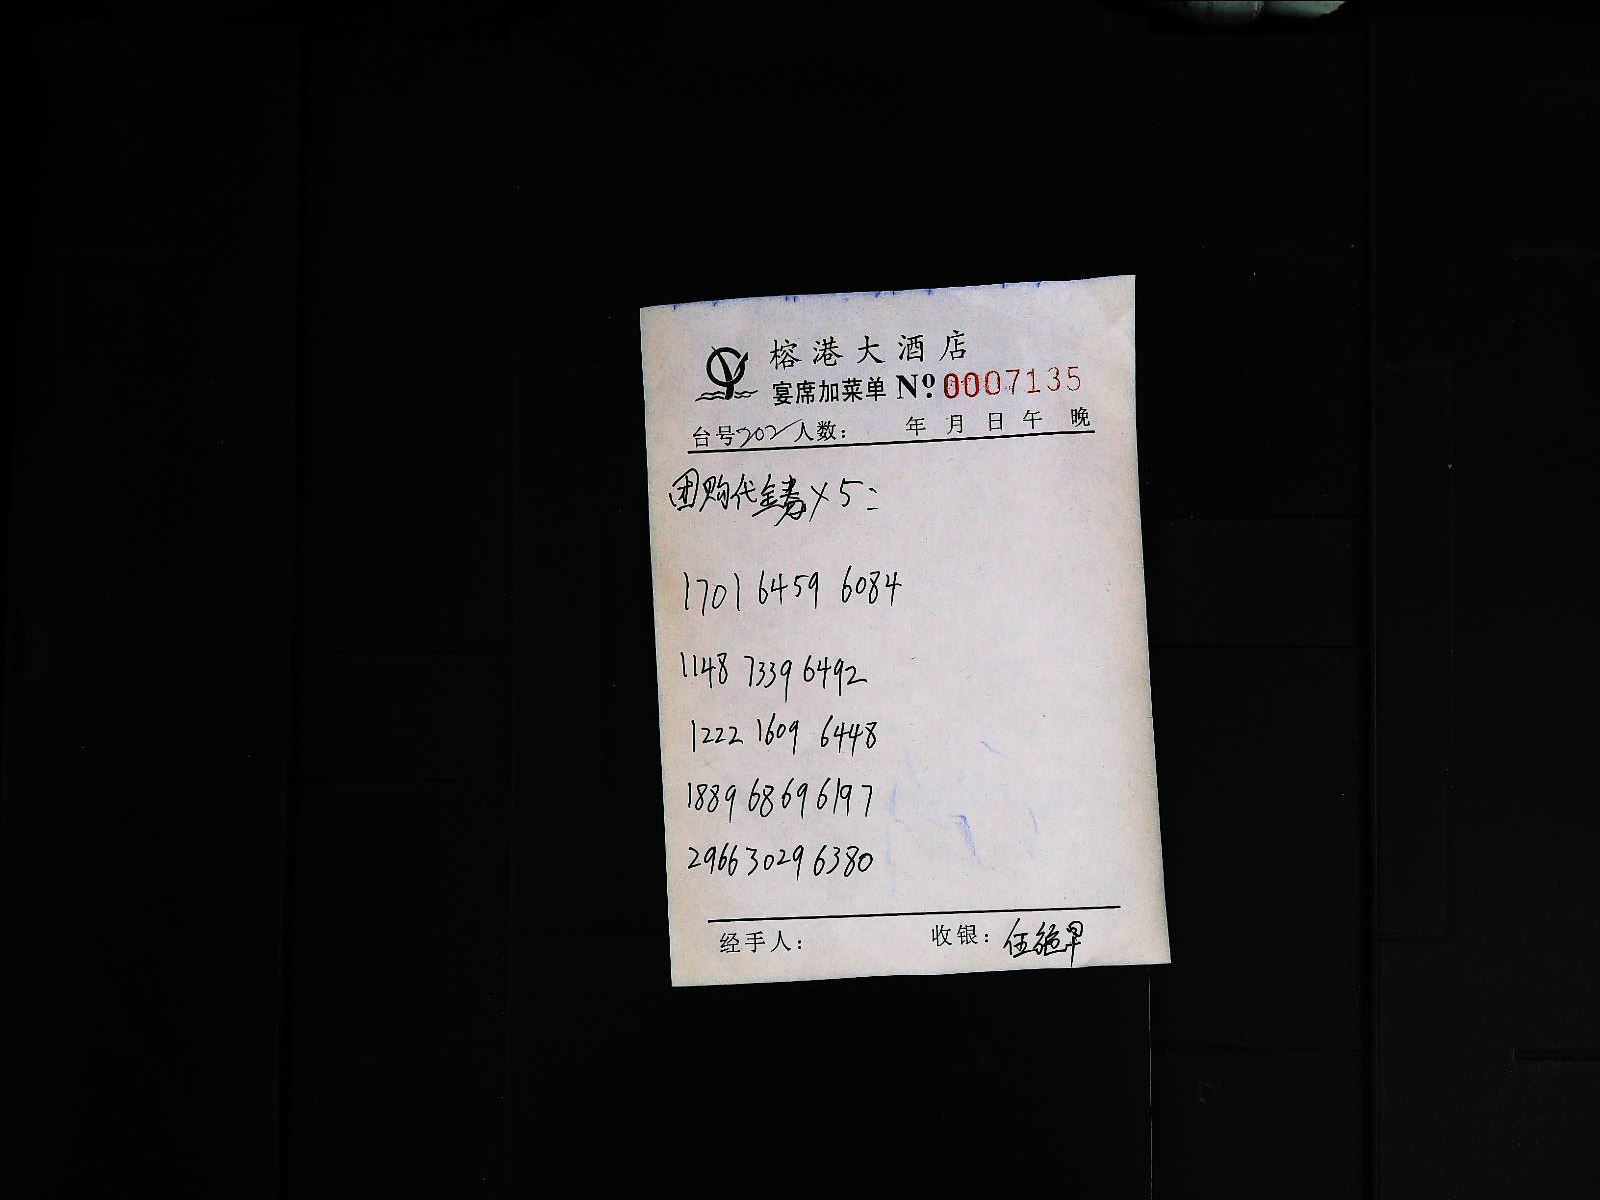 榕港大酒店
宴席加菜单 Nº.0007135
台号202 人数: 年 月 日 午 晚
团购代金券×5:
1701 6459 6084
1148 7339 6492
1222 1609 6448
1889 6869 6197
2966 3029 6380
经手人: 收银: